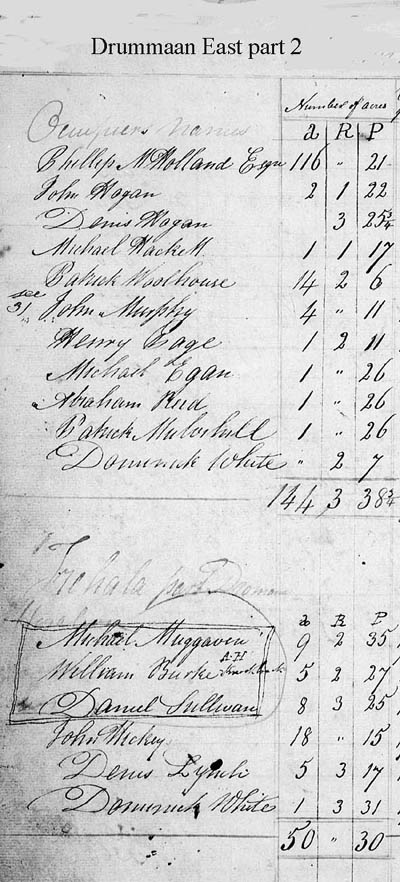 Drummaan East part 2
Number of acres
Occupiers Names a R P
Phillip McHolland Esqr 116 " 21
John Hogan 2 1 22
Denis Hogan 3 25¾
Michael Hackett 1 1 17
Patrick Woolhouse 14 2 6
see 31 John Murphy 4 " 11
Henry Gage 1 2 11
Michael Egan 1 " 26
Abraham Reid 1 " 26
Patrick 1 " 26
Dominick White " 2 7
144 3 38¾
part
a R P
Michael Muggavin 9 2 35
William Burke A.H 5 2 27
Daniel Sullivan 8 3 25
John Hickey 18 " 15
Denis Lynch 5 3 17
Dominick White 1 3 31
50 " 30